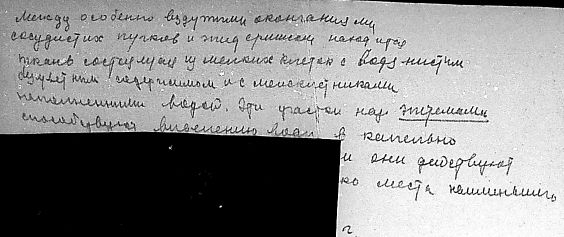 между особенно вздутыми окончаниями
сосудистых пучков и эпидермисом находится
ткань состоящая из мелких клеток с водянистым
бесцветным содержимым и с межклетниками
наполненными водой. Эти участки наз. эпитемами
способствуют выделению воды в капельно
и они действуют
место наименьшего
г.